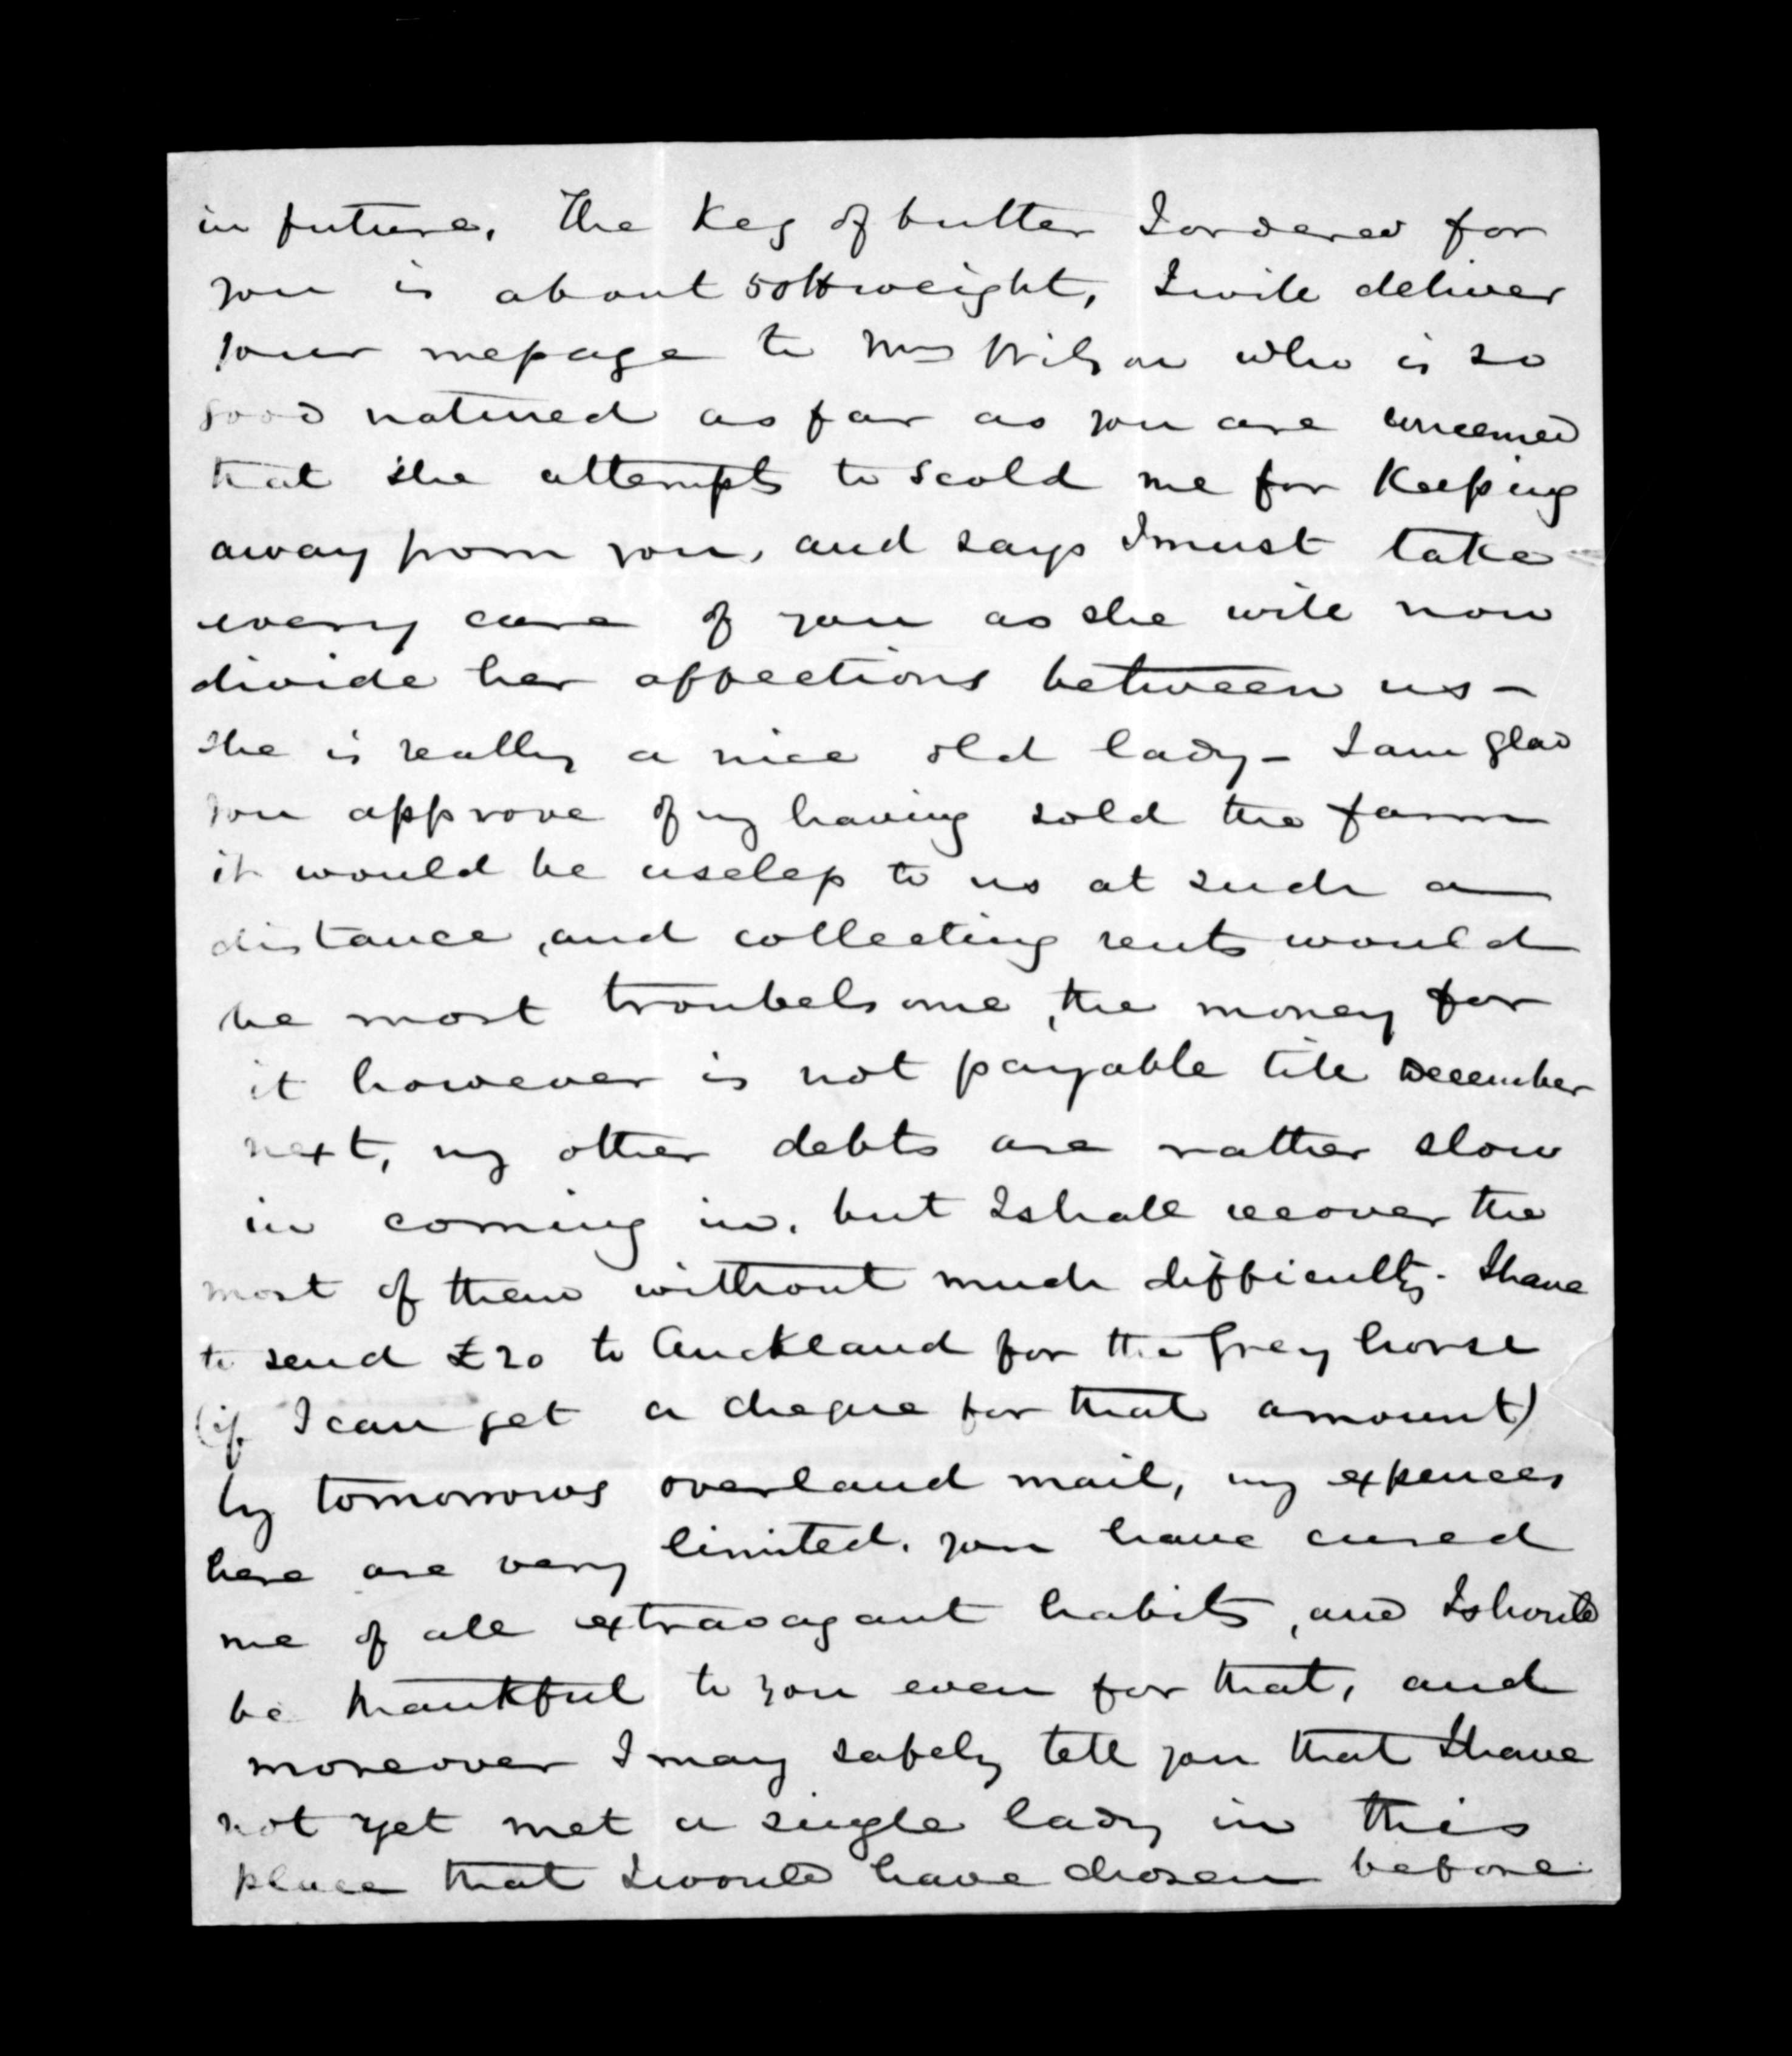 in future, The Keg of butter I ordered for
you is about 50lb weight, I will deliver
your message to Mrs Wilson who is so
good natured as far as you are concerned
that she attempts to scold me for Keeping
away from you, and says I must take
every care of you as she will now
divide her affections between us -
she is really a nice old lady - I am glad
you approve of my having sold the farm
it would be useless to us at such a
distance, and collecting rents would
be most troubelsome, the money for
it however is not payable till December
next, my other debts are rather slow
in coming in, but I shall recover the
most of them without much difficulty. I have
to send £20 to Auckland for the Grey horse
(if I can get a cheque for that amount)
by tomorrows overland mail, my expences
here are very limited. you have cured
me of all extravagant habits, and I should
be thankful to you even for that, and
moreover I may safely tell you that I have
not yet met a single lady in this
place that I would have chosen before